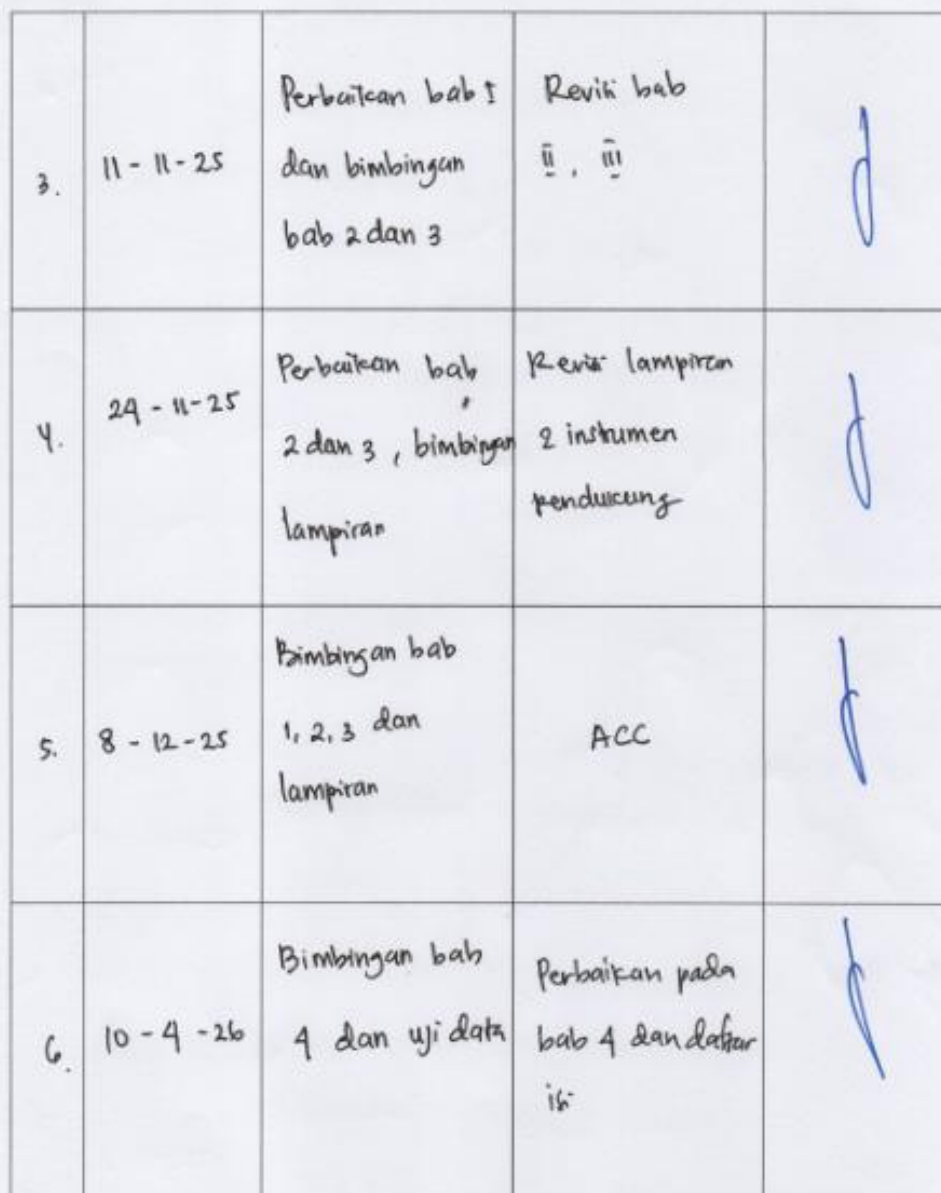 3.
11 - 11 - 25
Perbaikan bab I
dan bimbingan
bab 2 dan 3
Revisi bab
II , III
4.
24 - 11 - 25
Perbaikan bab
2 dan 3 , bimbingan
lampiran
Revisi lampiran
2 instrumen
pendukung
5.
8 - 12 - 25
Bimbingan bab
1, 2, 3 dan
lampiran
ACC
6.
10 - 4 - 26
Bimbingan bab
4 dan uji data
Perbaikan pada
bab 4 dan daftar
isi